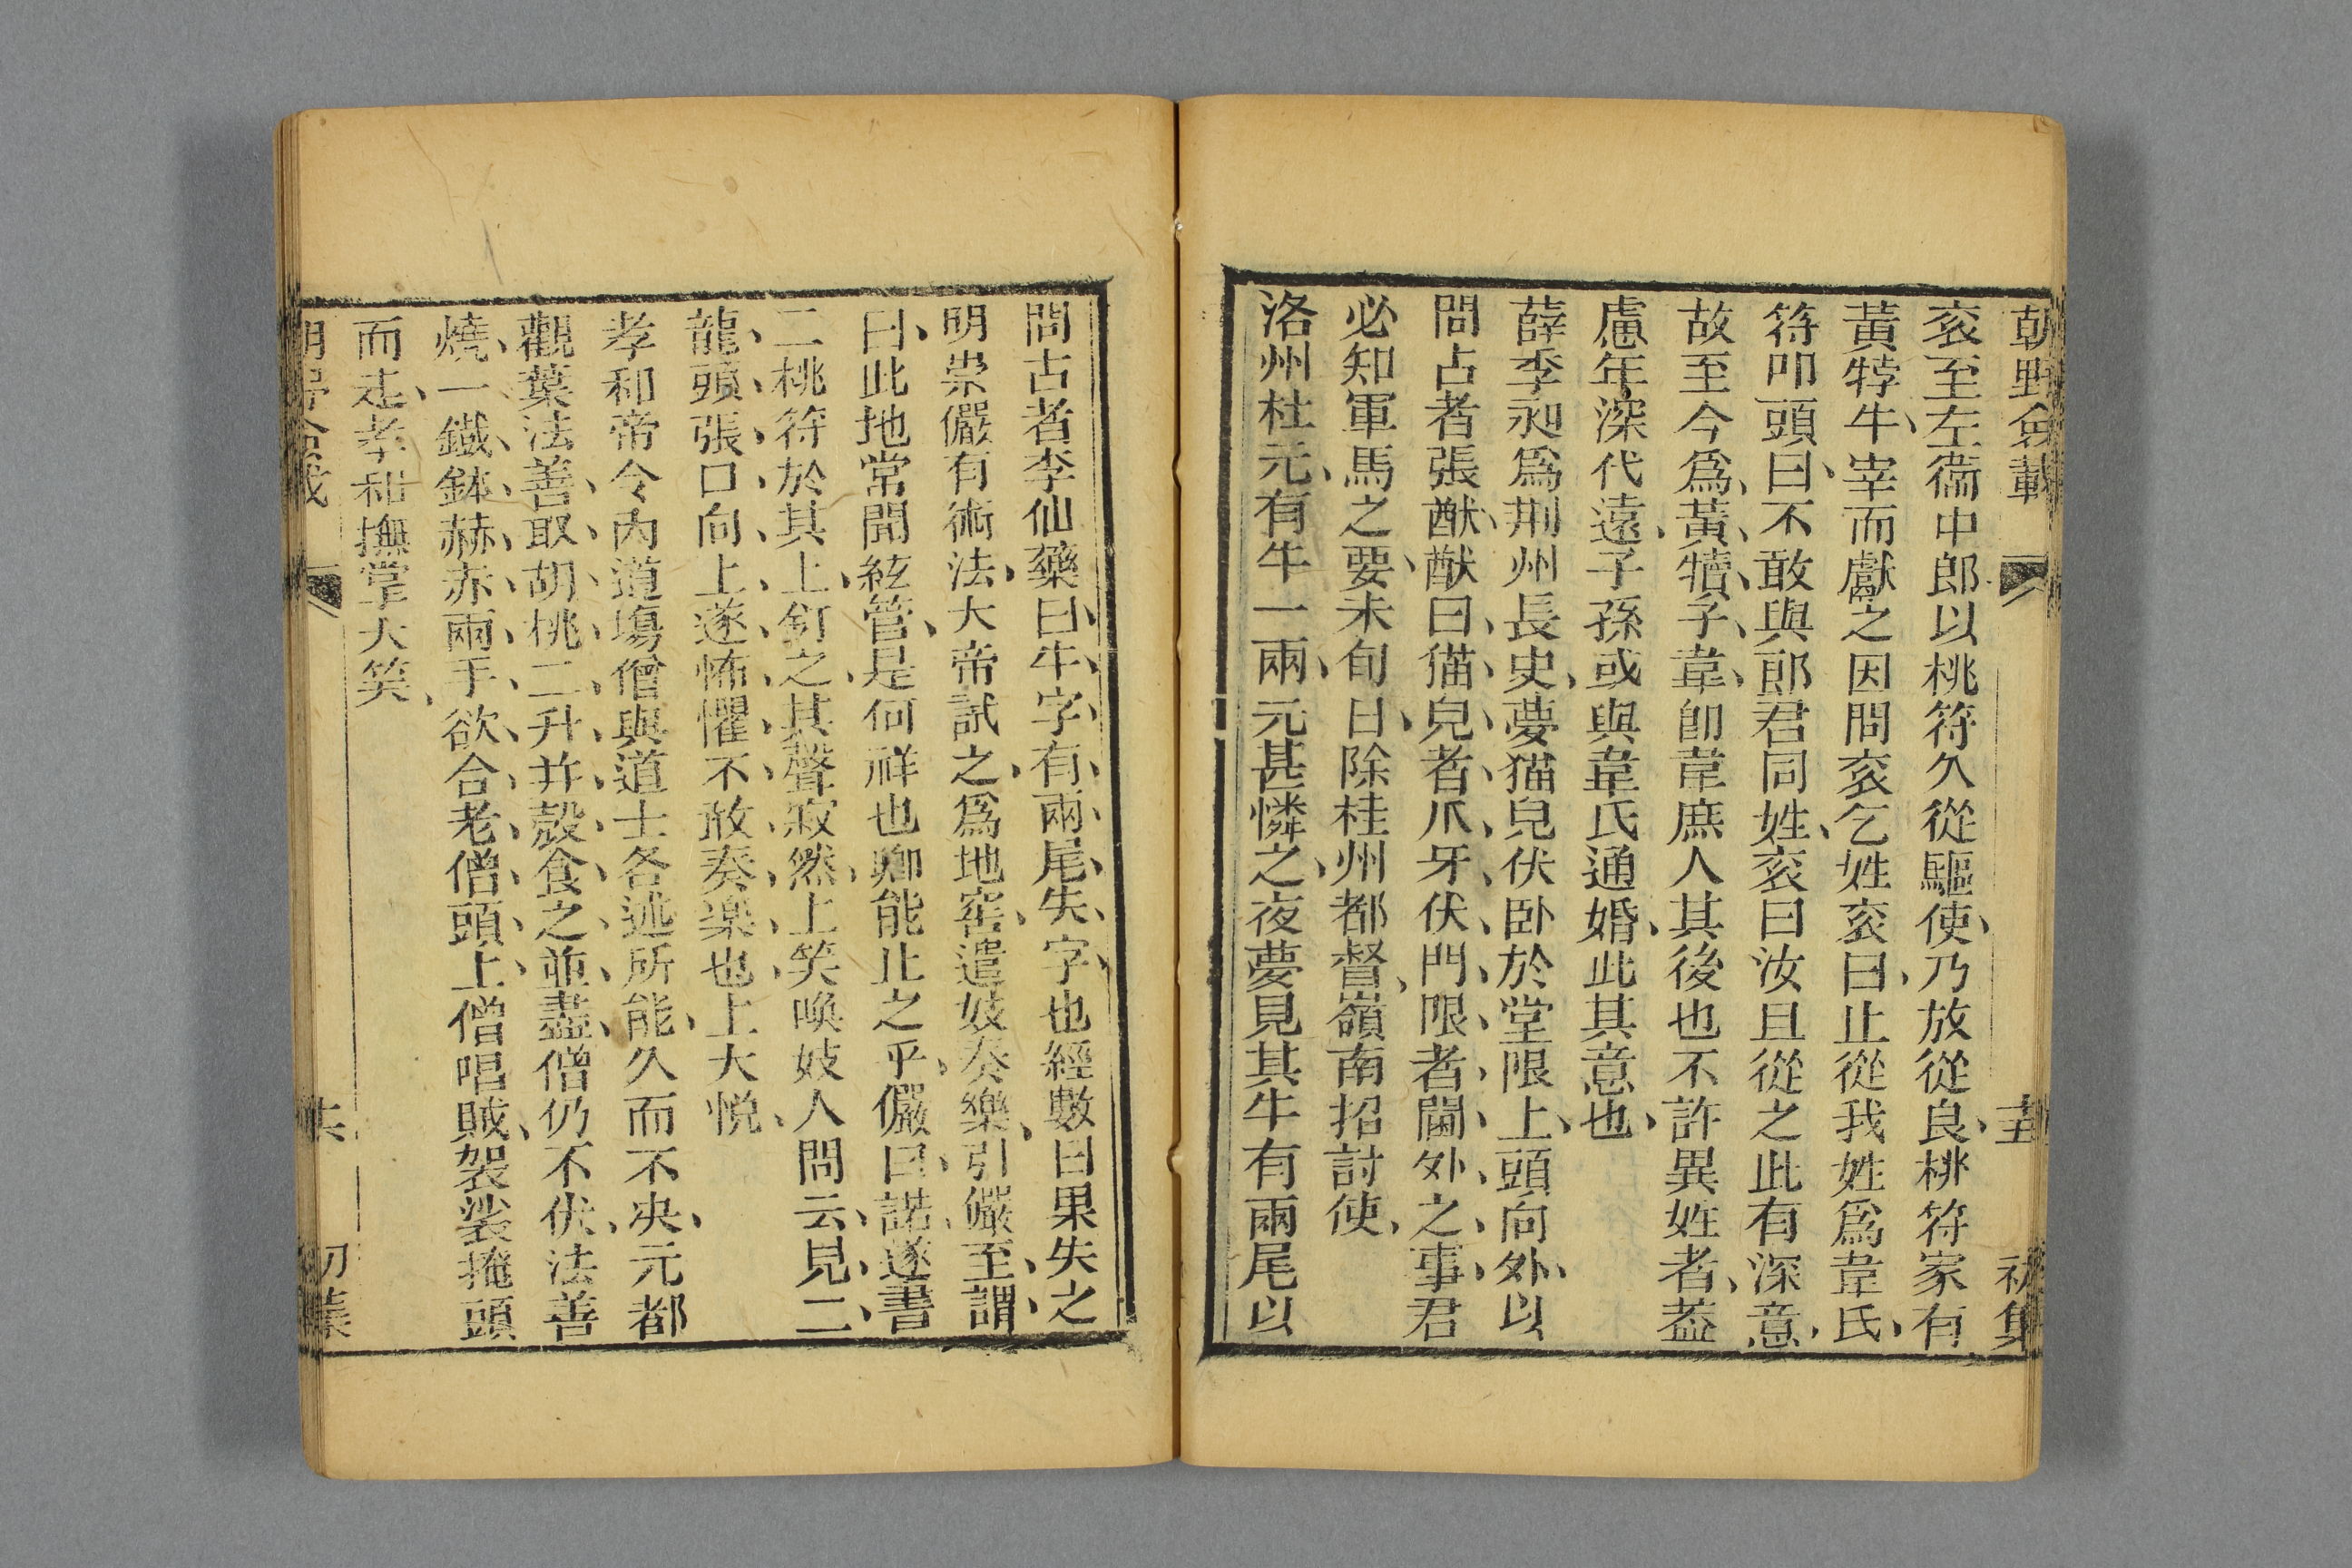 朝野僉載 十五 初集
衮至左衞中郎以桃符久從驅使、乃放從良、桃符家有
黃㹀牛、宰而獻之因問衮乞姓衮曰、止從我姓爲韋氏、
符叩頭曰、不敢與郎君同姓、衮曰汝且從之此有深意、
故至今爲、黃、犢、子、韋、卽韋庶人其後也不許異姓者、葢
慮年深代遠、子孫或與韋氏通婚、此其意也、
薛季昶爲荆州長史、夢猫兒伏卧於堂限上、頭向外、以
問占者張猷、猷曰、猫、兒、者、爪、牙、伏、門、限、者、閫、外、之、事、君
必知軍馬之要、未旬日、除桂州都督、嶺南招討使、
洛州杜元、有牛一兩、元甚憐之、夜夢見其牛有兩尾以
問占者李仙藥曰、牛、字、有、兩、尾、失、字、也經數日果失之
明崇儼有術法、大帝試之、爲地窖、遣妓奏樂、引儼至、謂、
曰、此地常聞絃管、是何祥也卿能止之乎、儼曰、諾、遂書
二桃符於其上、釘之、其聲寂然、上笑喚妓人問云、見、二、
龍、頭、張、口、向、上、遂、怖、懼、不、敢、奏、樂、也、上大悅、
孝和帝令內道塲僧與道士各述所能、久而不決、元都
觀葉法善、取、胡、桃、二、升、并、殼、食、之、並、盡、僧仍不伏、法善
燒、一鐵、鉢、赫、赤、兩、手、欲、合、老、僧、頭、上、僧唱賊、袈裟掩頭
而走、孝和撫掌大笑、